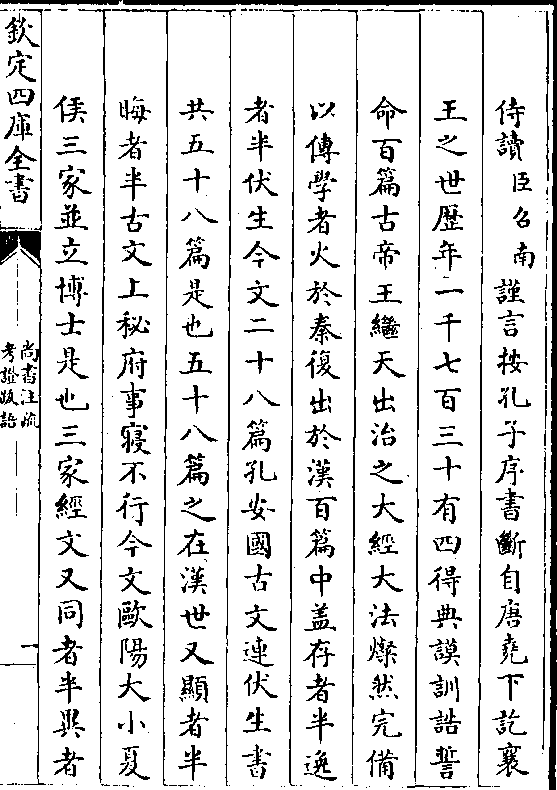 侍讀臣召南謹言按孔子序書斷自唐堯下訖襄
王之世歴年一千七百三十有四得典謨訓誥誓
命百篇古帝王繼天出治之大經大法燦然完備
以傳學者火於秦復出於漢百篇中盖存者半逸
者半伏生今文二十八篇孔安國古文連伏生書
共五十八篇是也五十八篇之在漢世又顯者半
晦者半古文上秘府事寝不行今文歐陽大小夏
侯三家並立博士是也三家經文又同者半異者
欽定四庫全書
尚書注疏
考證跋語
一